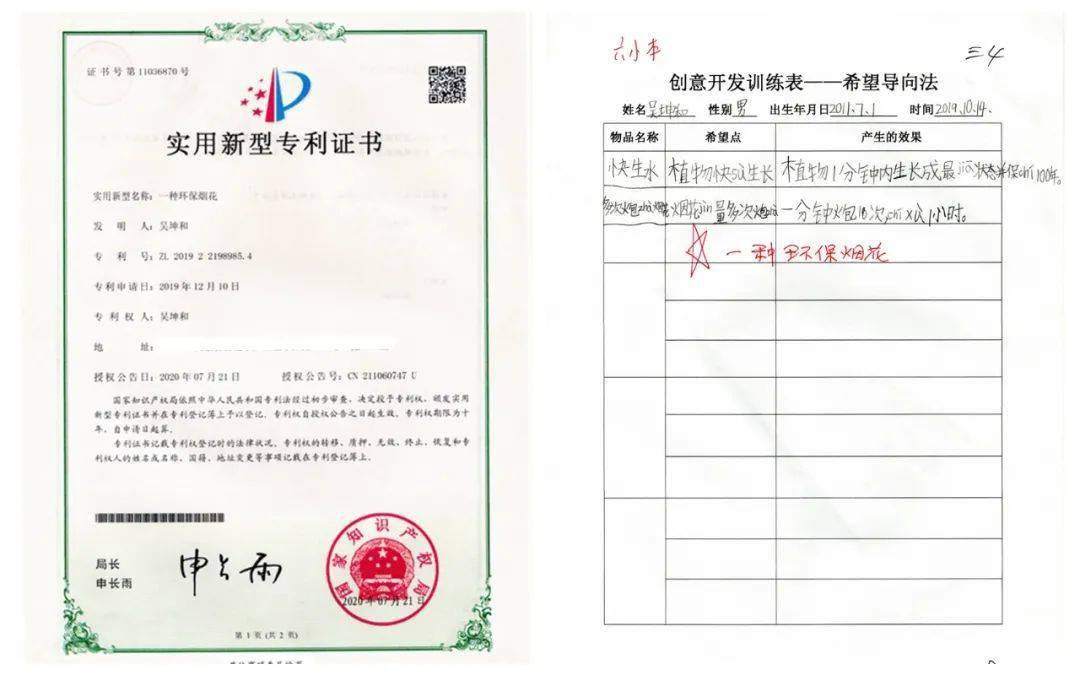 证书号第11036870号
实用新型专利证书
实用新型名称：一种环保烟花
发明人：吴坤和
专利号：ZL 2019 2 2198985.4
专利申请日：2019年12月10日
专利权人：吴坤和
地址：
授权公告日：2020年07月21日 授权公告号：CN 211060747 U
国家知识产权局依照中华人民共和国专利法经过初步审查，决定授予专利权，颁发实用
新型专利证书并在专利登记簿上予以登记。专利权自授权公告之日起生效。专利权期限为十
年，自申请日起算。
专利证书记载专利权登记时的法律状况。专利权的转移、质押、无效、终止、恢复和专
利权人的姓名或名称、国籍、地址变更等事项记载在专利登记簿上。
局长
申长雨
申长雨
国家知识产权局
2020年07月21日
第1页（共2页）
六小本
三4
创意开发训练表——希望导向法
姓名 吴坤和 性别 男 出生年月日 2011.7.1 时间 2019.10.14.
物品名称 希望点 产生的效果
快生水 植物快sù生长 植物1分钟内生长成最jiā状态并保chí100年。
量多次 一分钟火包10次
小时。
一种环保烟花